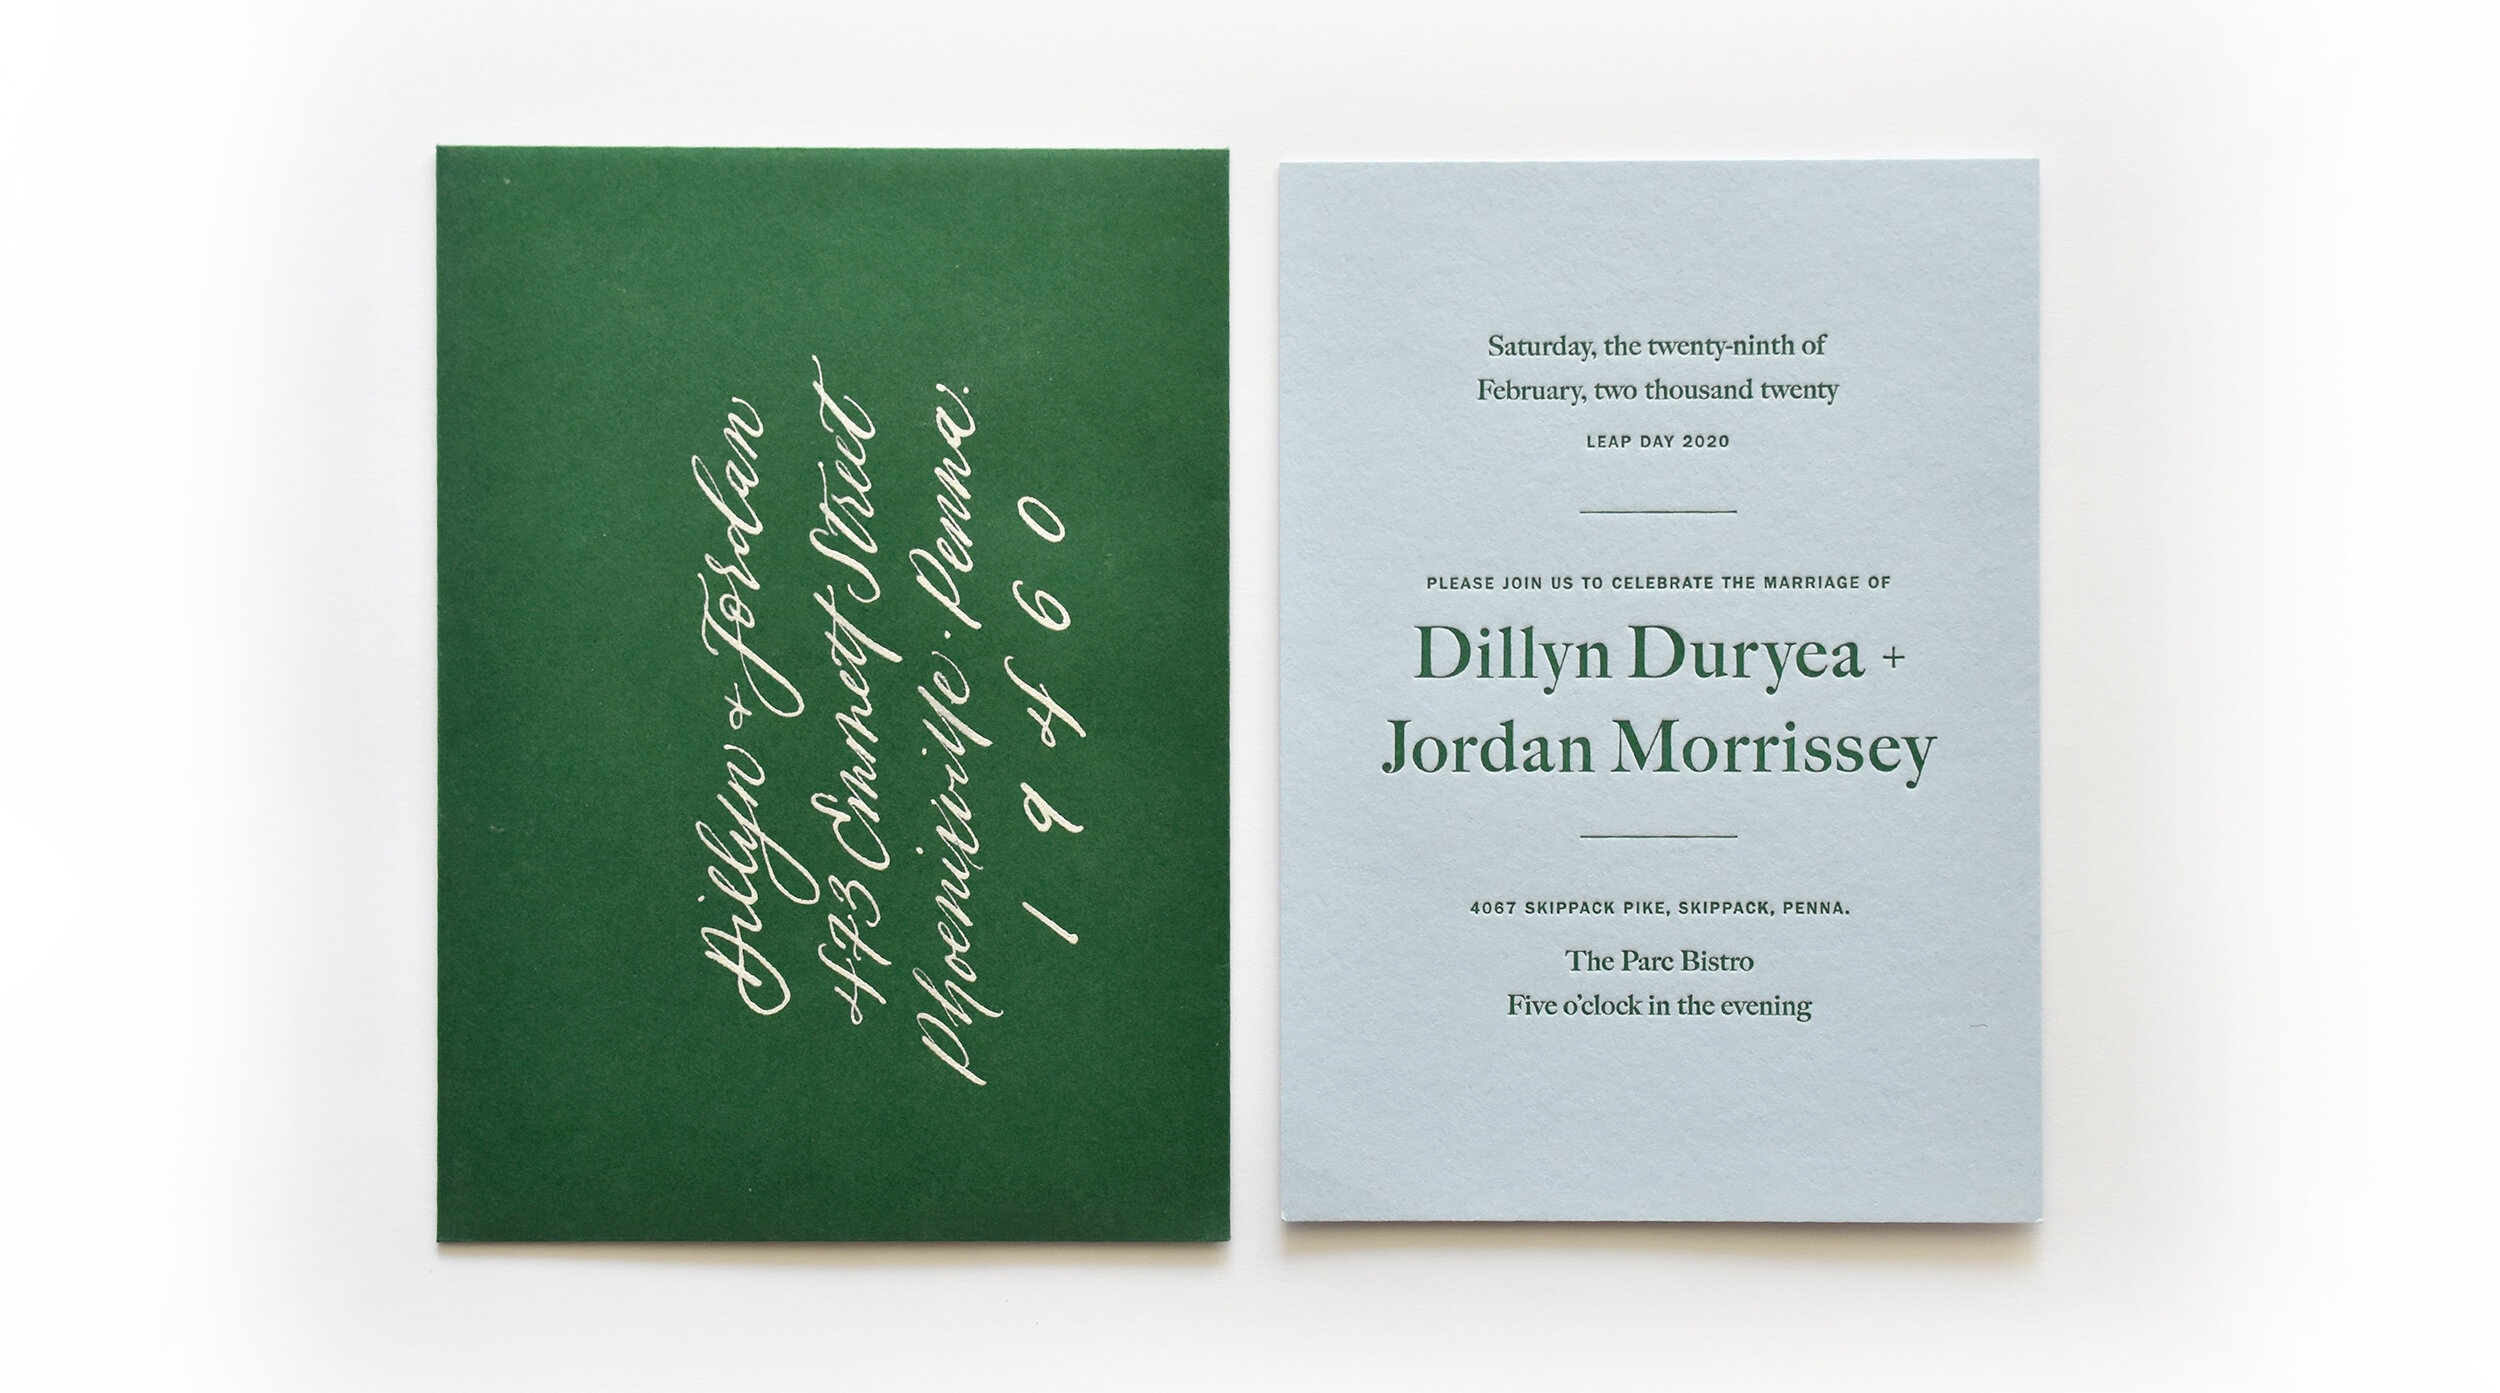 Dillyn + Jordan
473 Emmett Street
Phoenixville. Penna.
19460
Saturday, the twenty-ninth of
February, two thousand twenty
LEAP DAY 2020
PLEASE JOIN US TO CELEBRATE THE MARRIAGE OF
Dillyn Duryea +
Jordan Morrissey
4067 SKIPPACK PIKE, SKIPPACK, PENNA.
The Parc Bistro
Five o'clock in the evening